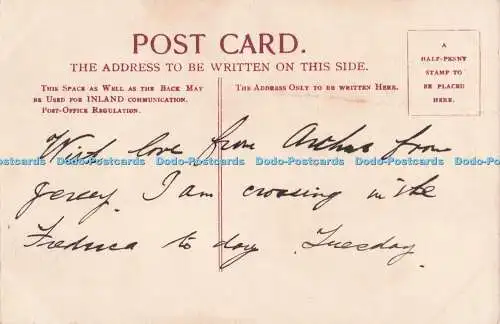 POST CARD.
THE ADDRESS TO BE WRITTEN ON THIS SIDE.
THIS SPACE AS WELL AS THE BACK MAY
BE USED FOR INLAND COMMUNICATION.
POST-OFFICE REGULATION.
THE ADDRESS ONLY TO BE WRITTEN HERE.
A
HALF-PENNY
STAMP TO
BE PLACED
HERE.
With love from Arthur from
Jersey. I am crossing in the
Frederica to day. Tuesday.
Dodo-Postcards Dodo-Postcards Dodo-Postcards Dodo-Postcards Dodo-Postcards